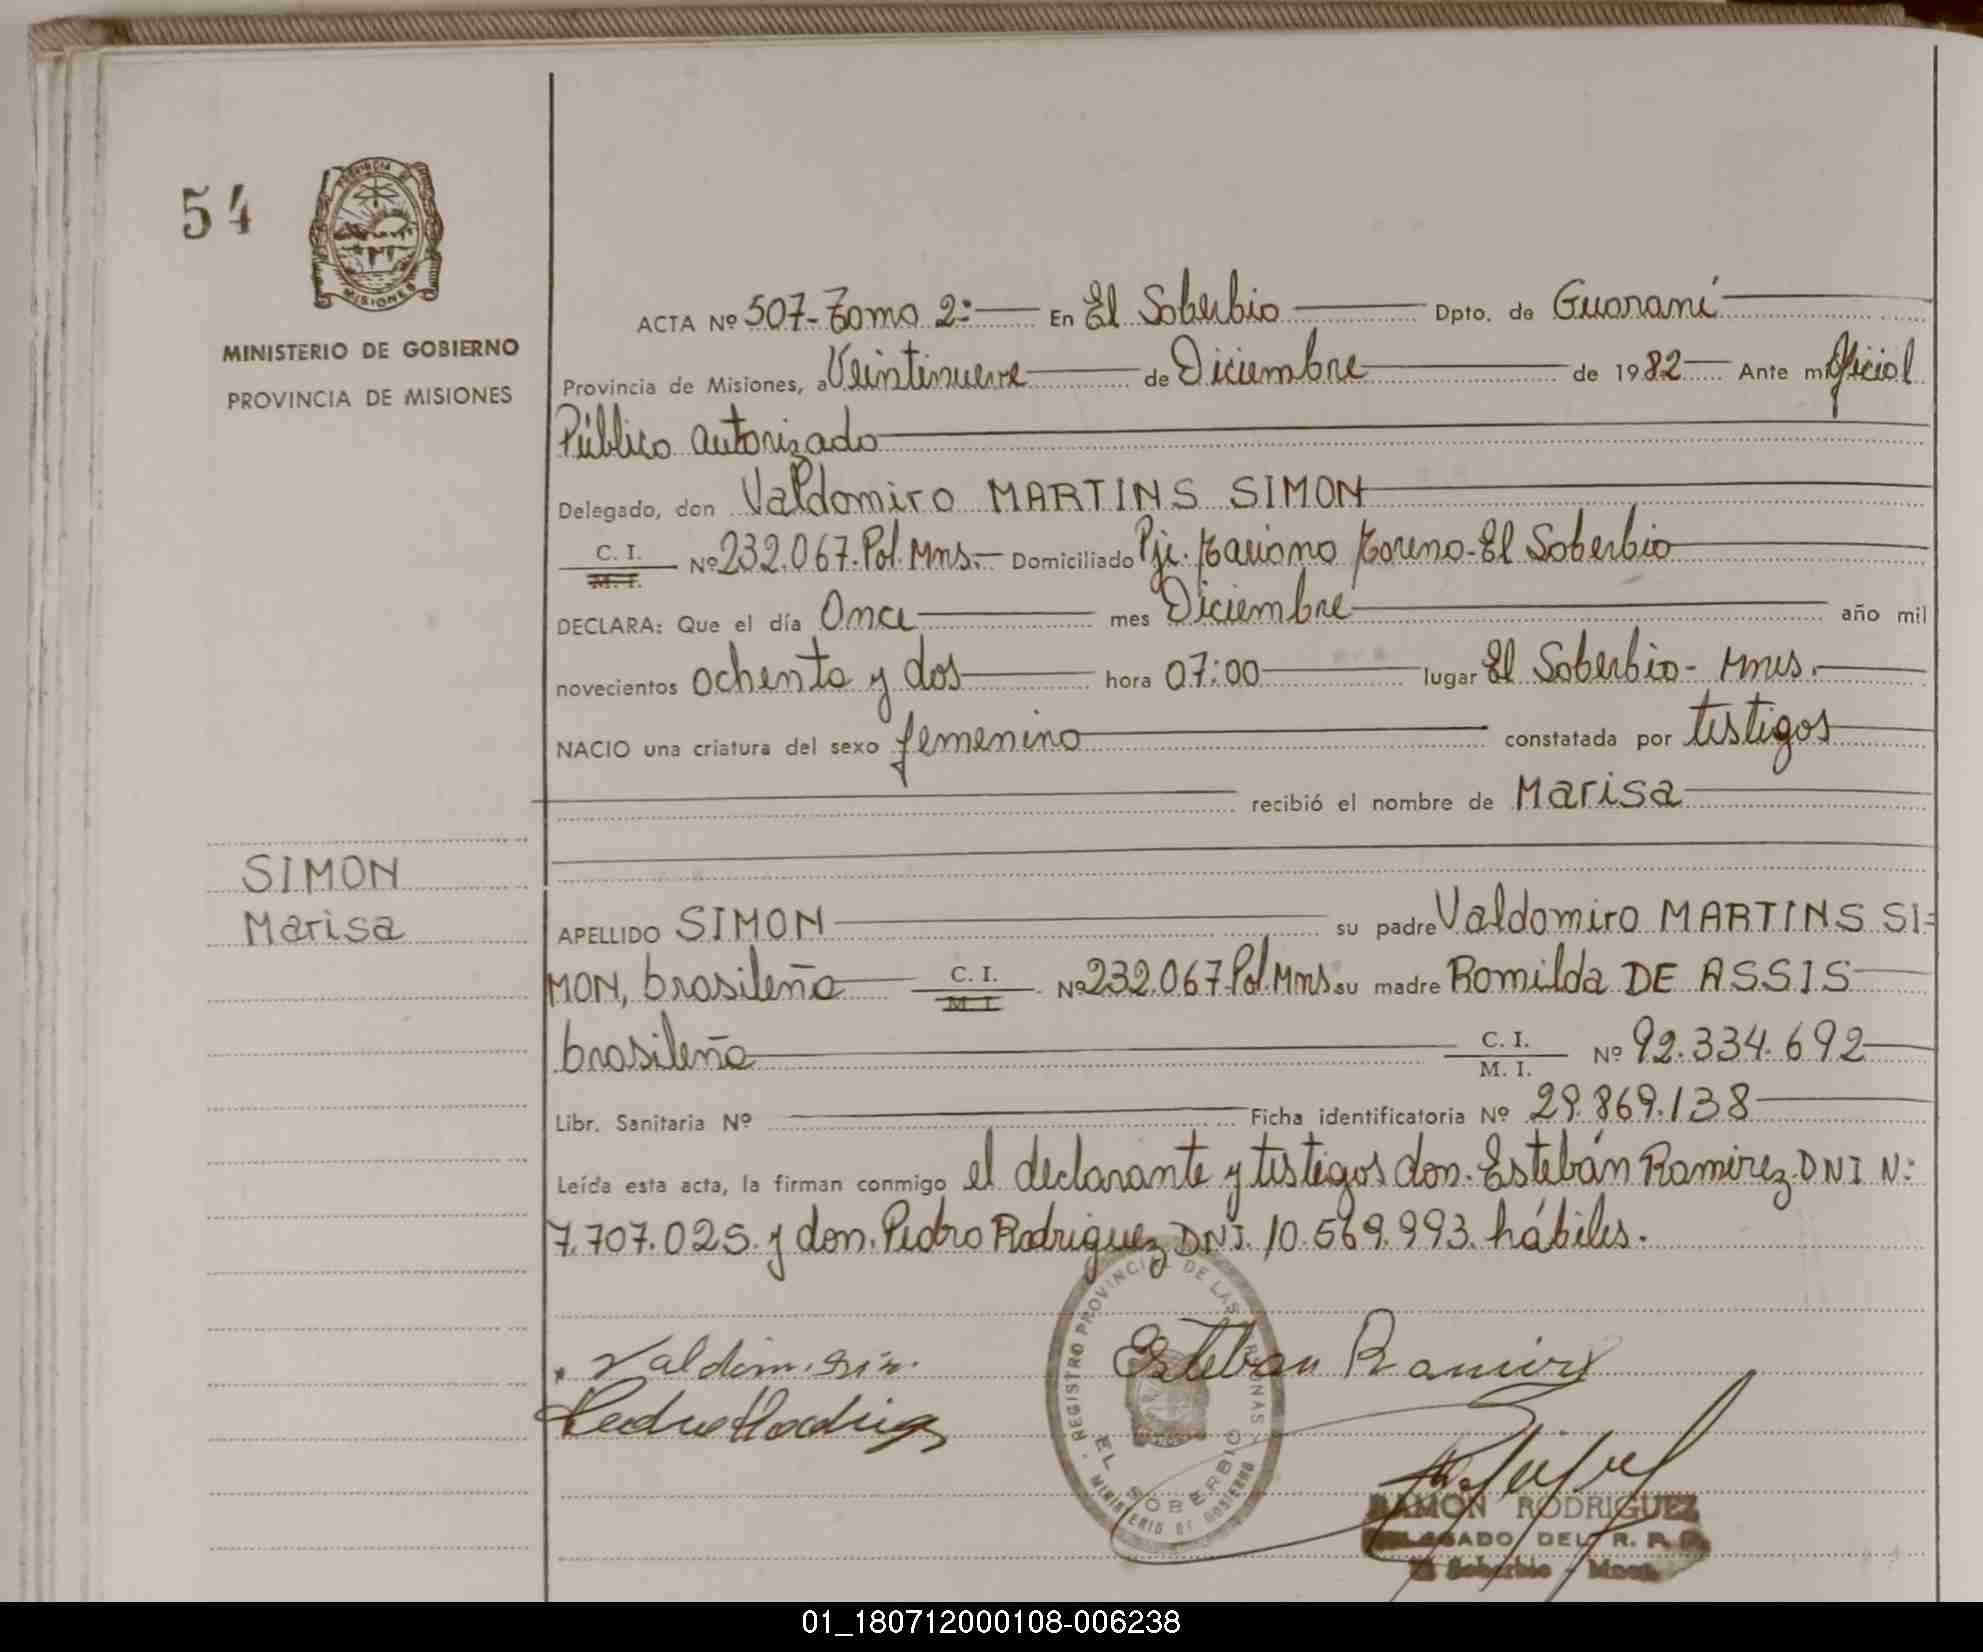 54
PROVINCIA DE
MISIONES
MINISTERIO DE GOBIERNO
PROVINCIA DE MISIONES
ACTA Nº 507-Tomo 2º En El Soberbio Dpto. de Guaraní
Provincia de Misiones, a Veintinueve de Diciembre de 1982 Ante mi Oficial
Público autorizado
Delegado, don Valdomiro MARTINS SIMON
C. I.
M. I. Nº 232.067.Pol.Mns.- Domiciliado Pje. Mariano Moreno-El Soberbio
DECLARA: Que el día Once mes Diciembre año mil
novecientos ochenta y dos hora 07:00 lugar El Soberbio- Mnes.
NACIO una criatura del sexo femenino constatada por testigos
recibió el nombre de Marisa
SIMON
Marisa
APELLIDO SIMON su padre Valdomiro MARTINS SI=
MON, brasileño C. I. M. I. Nº 232.067.Pol.Mns su madre Romilda DE ASSIS
brasileña C. I. M. I. Nº 92.334.692
Libr. Sanitaria Nº Ficha identificatoria Nº 29.869.138
Leída esta acta, la firman conmigo el declarante y testigos don. Estebán Ramirez.DNI N:
7.707.025. y don. Pedro Rodriguez DNI. 10.569.993. hábiles.
REGISTRO PROVINCIAL DE LAS PERSONAS
EL SOBERBIO
MINISTERIO DE GOBIERNO
Esteban Ramirez
RAMON RODRIGUEZ
DELEGADO DEL R. P. P.
El Soberbio - Mnes.
01_180712000108-006238